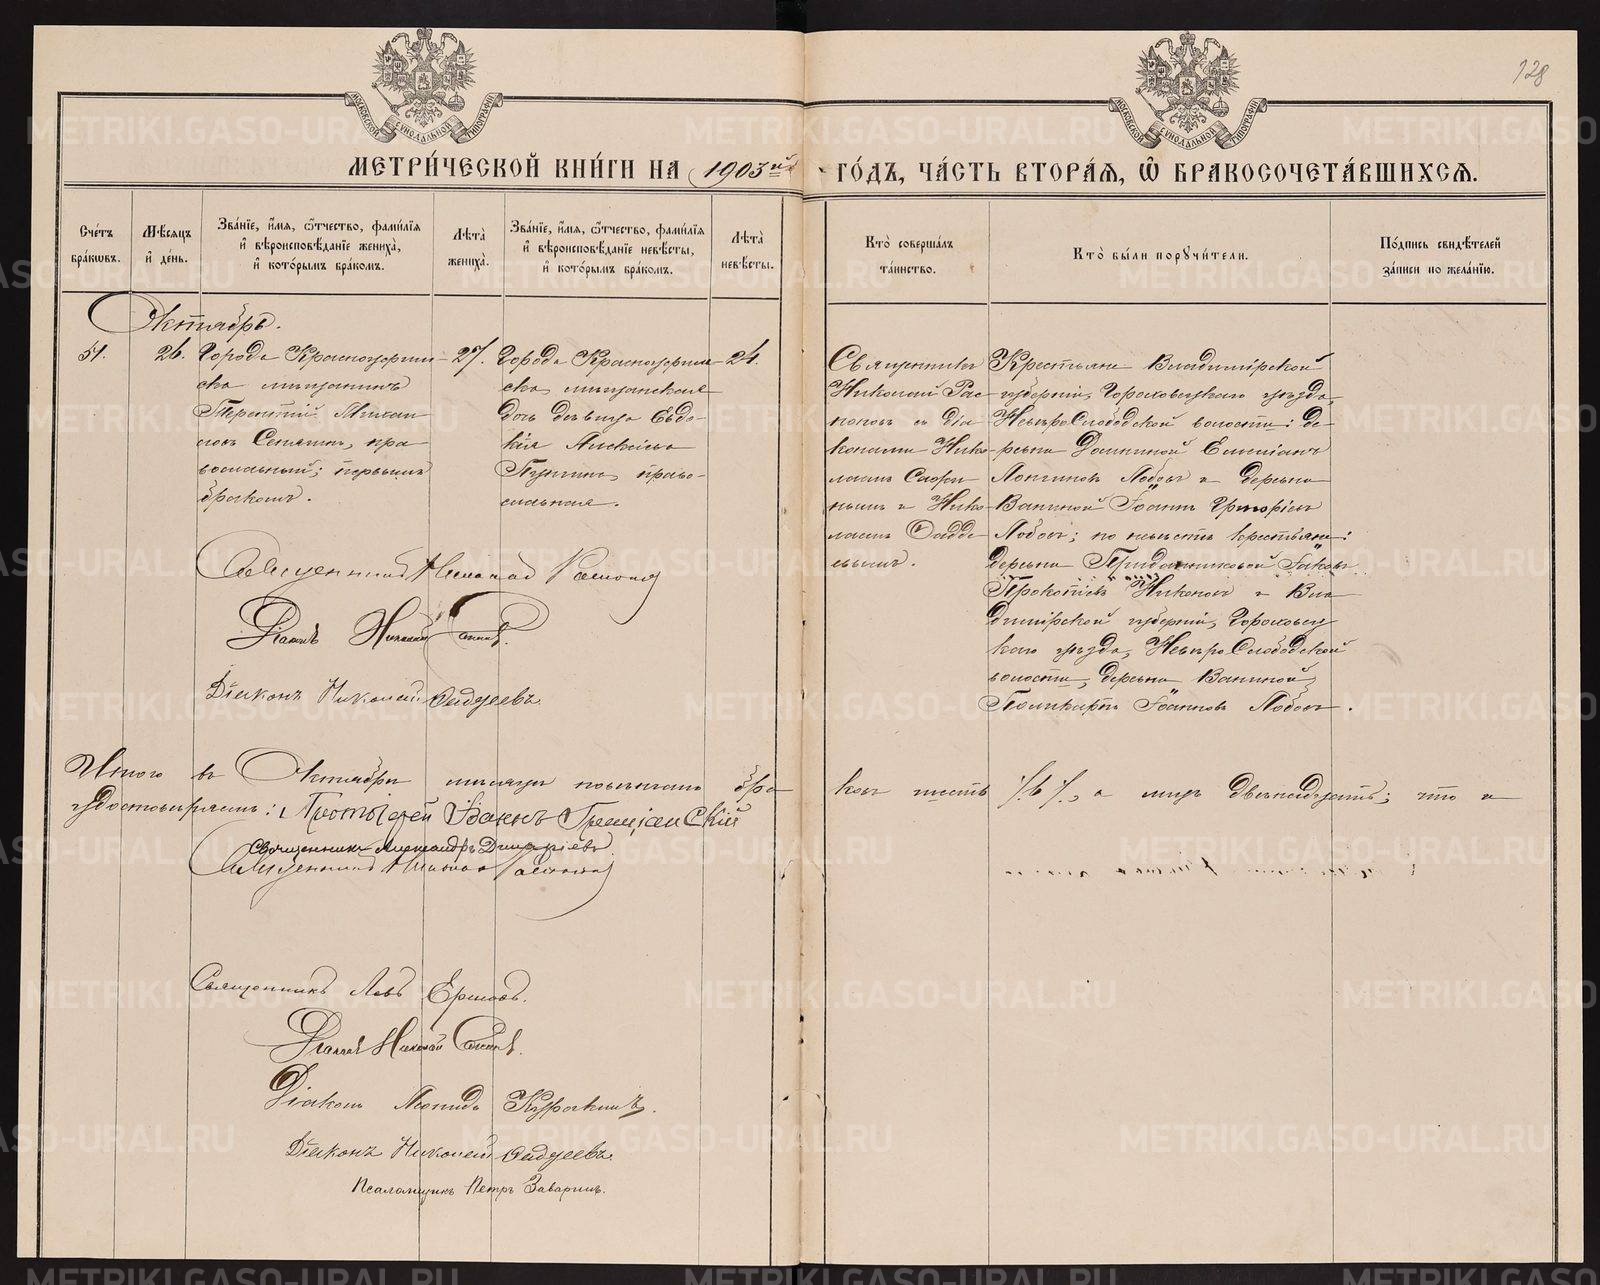 128
МОСКОВСКОЙ СѴНОДАЛЬНОЙ ТИПОГРАФІИ
МОСКОВСКОЙ СѴНОДАЛЬНОЙ ТИПОГРАФІИ
МЕТРИ́ЧЕСКОЙ КНИ́ГИ НА 1903й ГО́ДЪ, ЧА́СТЬ ВТОРА́Я, Ѡ БРАКОСОЧЕТА́ВШИХСѦ.
Сче́тъ бра́кѡвъ.
Мѣ́сѧцъ и҆ де́нь.
Зва́нїе, и҆́мѧ, ѻ҆́тчество, фами́лїѧ и҆ вѣроисповѣ́данїе жениха̀, и҆ кото́рымъ бра́комъ.
Лѣ́та жениха̀.
Зва́нїе, и҆́мѧ, ѻ҆́тчество, фами́лїѧ и҆ вѣроисповѣ́данїе невѣ́сты, и҆ кото́рымъ бра́комъ.
Лѣ́та невѣ́сты.
Кто̀ соверша́лъ та́инство.
Кто̀ бы́ли порꙋчи́тели.
По́дпись свидѣ́телей за́писи по жела́нїю.
Октябрь.
51.
26.
Города Красноуфим-
ска мѣщанинъ
Терентій Михаи
ловъ
пра
вославный; первымъ
бракомъ.
27.
Города Красноуфим
ска, мѣщанская
дочь дѣвица Евдо-
кія Алексѣева
право-
славная.
24.
Священникъ
Николай Рас
поповъ съ діа
конами Нико
лаемъ
и Нико
лаемъ Авдѣ
евымъ.
Крестьяне Владимірской
губерніи, Гороховецкаго уѣзда,
волости: де
ревни Емеліанъ
Логиновъ Лобовъ и деревни
Ваниной Іоаннъ Григоріевъ
Лобовъ; по невѣстѣ крестьяне:
деревни Іаковъ
Прокопіевъ Никоновъ и Вла
димірской губерніи, Гороховец
каго уѣзда,
волости, деревни Ваниной
Поликарпъ Іоанновъ Лобовъ.
Священникъ Николай Распоповъ
Діаконъ Николай
Діаконъ Николай Авдѣевъ.
Итого въ Октябрѣ мѣсяцѣ повѣнчано бра
ковъ шесть /6/, а лицъ двѣнадцать; что и
удостовѣряемъ: Протоіерей Іоаннъ
Священникъ Александръ
Священникъ Николай Распоповъ
Священникъ Левъ Ершовъ.
Діаконъ Николай
Діаконъ Леонидъ
Діаконъ Николай Авдѣевъ.
Псаломщикъ Петръ Заваринъ.
METRIKI.GASO-URAL.RU